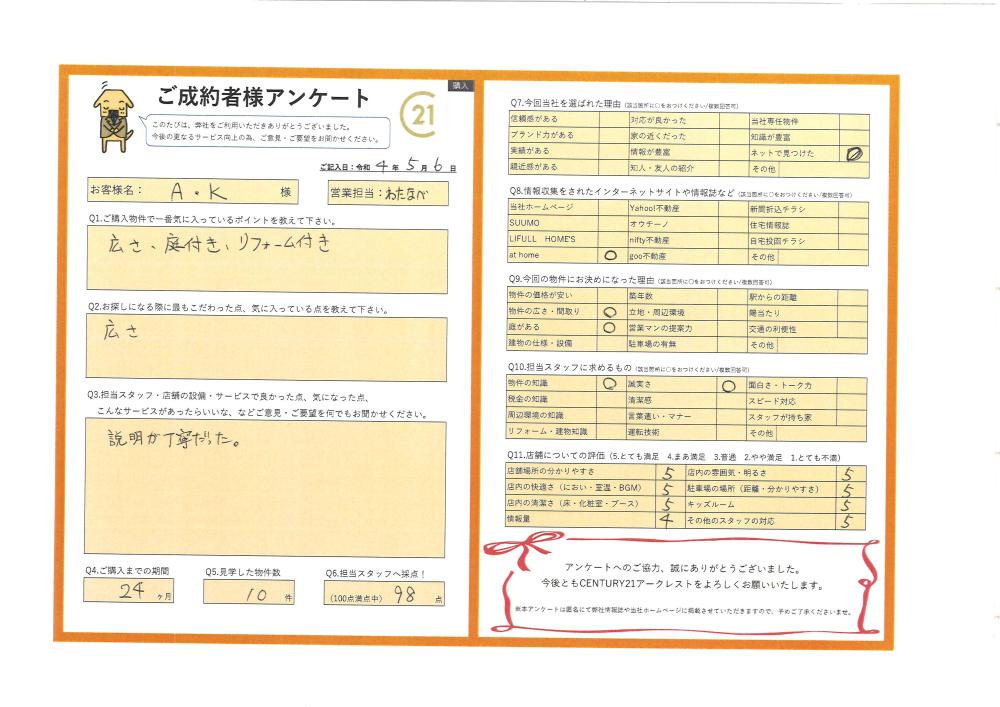 購入
ご成約者様アンケート
21
このたびは、弊社をご利用いただきありがとうございました。
今後の更なるサービス向上の為、ご意見・ご要望をお聞かせください。
ご記入日：令和 4 年 5 月 6 日
お客様名： A・K 様
営業担当：わたなべ
Q1.ご購入物件で一番気に入っているポイントを教えて下さい。
広さ、庭付き、リフォーム付き
Q2.お探しになる際に最もこだわった点、気に入っている点を教えて下さい。
広さ
Q3.担当スタッフ・店舗の設備・サービスで良かった点、気になった点、
こんなサービスがあったらいいな、などご意見・ご要望を何でもお聞かせください。
説明が丁寧だった。
Q4.ご購入までの期間
24 ヶ月
Q5.見学した物件数
10 件
Q6.担当スタッフへ採点！
(100点満点中) 98 点
Q7.今回当社を選ばれた理由（該当箇所に○をおつけください/複数回答可）
信頼感がある 対応が良かった 当社専任物件
ブランド力がある 家の近くだった 知識が豊富
実績がある 情報が豊富 ネットで見つけた ○
親近感がある 知人・友人の紹介 その他
Q8.情報収集をされたインターネットサイトや情報誌など（該当箇所に○をおつけください/複数回答可）
当社ホームページ Yahoo!不動産 新聞折込チラシ
SUUMO オウチーノ 住宅情報誌
LIFULL HOME'S nifty不動産 自宅投函チラシ
at home ○ goo不動産 その他
Q9.今回の物件にお決めになった理由（該当箇所に○をおつけください/複数回答可）
物件の価格が安い 築年数 駅からの距離
物件の広さ・間取り ○ 立地・周辺環境 陽当たり
庭がある ○ 営業マンの提案力 交通の利便性
建物の仕様・設備 駐車場の有無 その他
Q10.担当スタッフに求めるもの（該当箇所に○をおつけください/複数回答可）
物件の知識 ○ 誠実さ ○ 面白さ・トーク力
税金の知識 清潔感 スピード対応
周辺環境の知識 言葉遣い・マナー スタッフが持ち家
リフォーム・建物知識 運転技術 その他
Q11.店舗についての評価（5.とても満足 4.まあ満足 3.普通 2.やや満足 1.とても不満）
店舗場所の分かりやすさ 5 店内の雰囲気・明るさ 5
店内の快適さ（におい・室温・BGM） 5 駐車場の場所（距離・分かりやすさ） 5
店内の清潔さ（床・化粧室・ブース） 5 キッズルーム 5
情報量 4 その他のスタッフの対応 5
アンケートへのご協力、誠にありがとうございました。
今後ともCENTURY21アークレストをよろしくお願いいたします。
※本アンケートは匿名にて弊社情報誌や当社ホームページに掲載させていただきますので、予めご了承くださいませ。